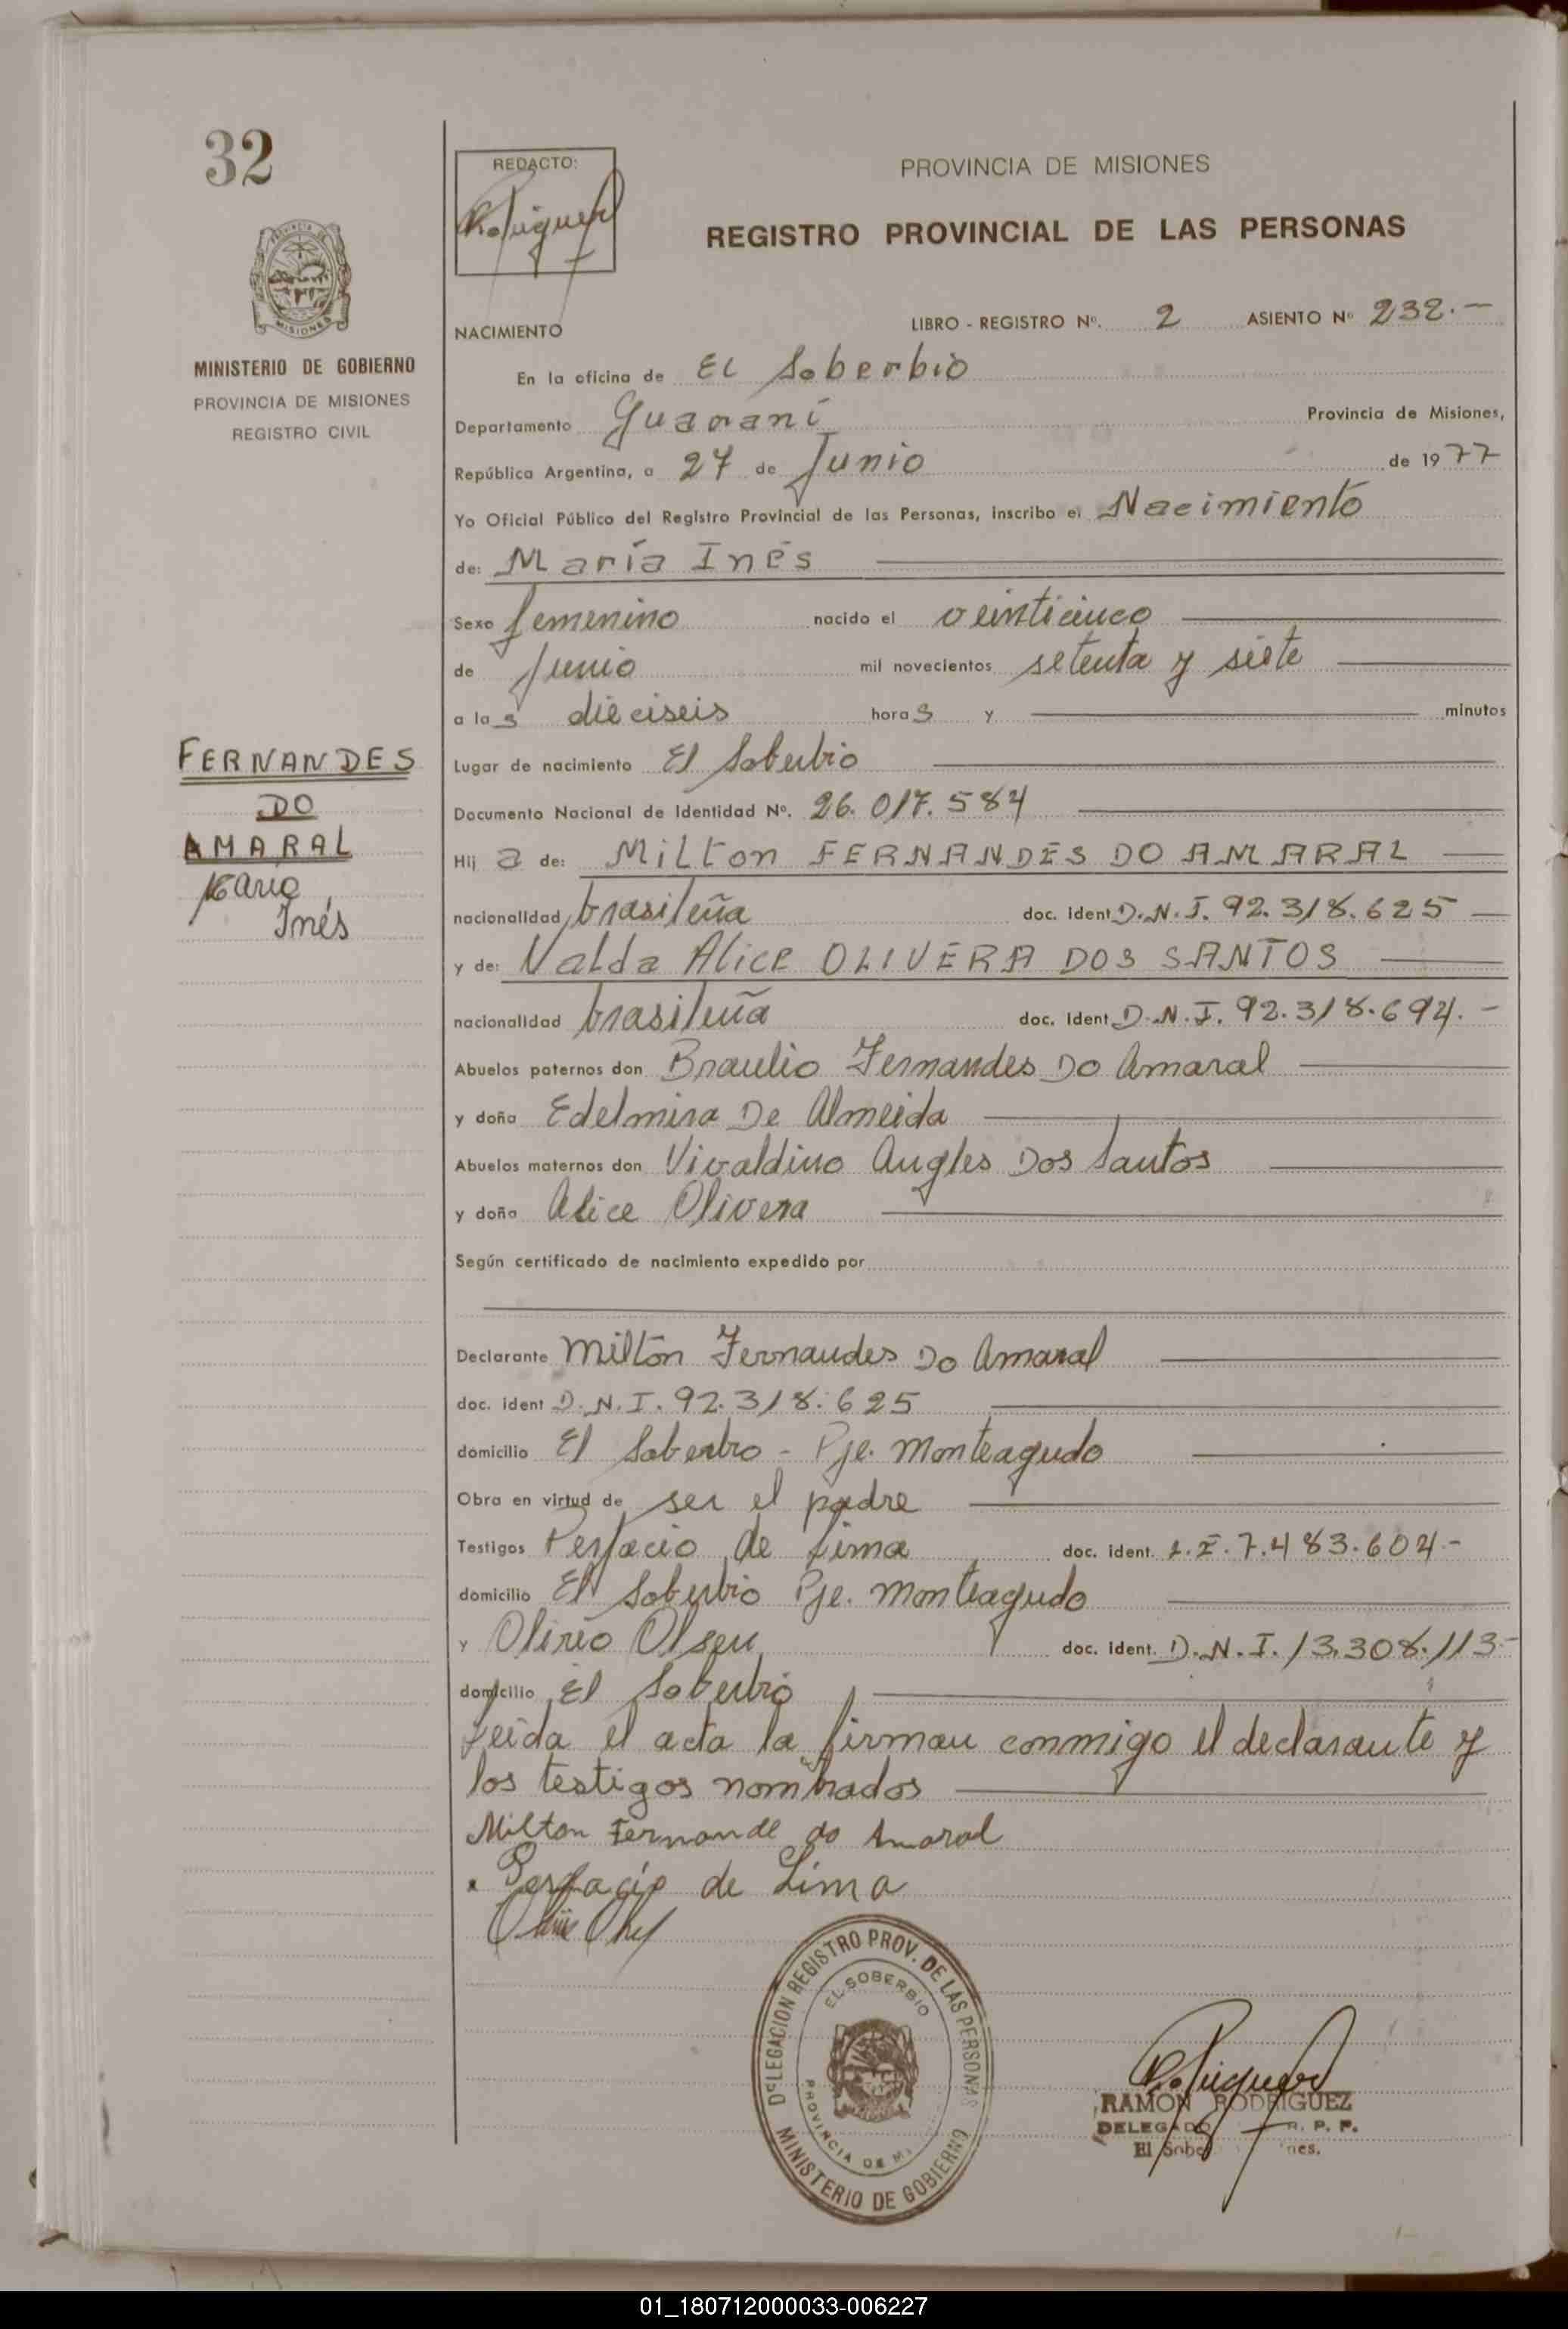 32
MINISTERIO DE GOBIERNO
PROVINCIA DE MISIONES
REGISTRO CIVIL
FERNANDES
DO
AMARAL
María
Inés
REDACTO:
PROVINCIA DE MISIONES
REGISTRO PROVINCIAL DE LAS PERSONAS
NACIMIENTO LIBRO - REGISTRO Nº. 2 ASIENTO Nº 232.-
En la oficina de El Soberbio
Departamento Guaraní Provincia de Misiones,
República Argentina, a 27 de Junio de 1977
Yo Oficial Público del Registro Provincial de las Personas, inscribo el Nacimiento
de: María Inés
Sexo femenino nacido el veinticinco
de junio mil novecientos setenta y siete
a las dieciseis horas y minutos
Lugar de nacimiento El Soberbio
Documento Nacional de Identidad Nº. 26.017.584
Hija de: Milton FERNANDES DO AMARAL
nacionalidad brasileña doc. ident D.N.I. 92.318.625
y de: Valda Alice OLIVERA DOS SANTOS
nacionalidad brasileña doc. ident D.N.I. 92.318.694.-
Abuelos paternos don Braulio Fernandes Do Amaral
y doña Edelmira De Almeida
Abuelos maternos don Vivaldino Angles Dos Santos
y doña Alice Olivera
Según certificado de nacimiento expedido por
Declarante Milton Fernandes Do Amaral
doc. ident D.N.I. 92.318.625
domicilio El Soberbio - Pje. Monteagudo
Obra en virtud de ser el padre
Testigos Perfacio de Lima doc. ident. L.E. 7.483.604-
domicilio El Soberbio Pje. Monteagudo
y Olirio Olsen doc. ident. D.N.I. 13.308.113-
domicilio El Soberbio
Leída el acta la firman conmigo el declarante y
los testigos nombrados
Milton Fernande do Amaral
Perfacio de Lima
DELEGACION REGISTRO PROV. DE LAS PERSONAS
EL SOBERBIO
PROVINCIA DE
MINISTERIO DE GOBIERNO
RAMON RODRIGUEZ
DELEGADO R. P. P.
El Sobe nes.
01_180712000033-006227